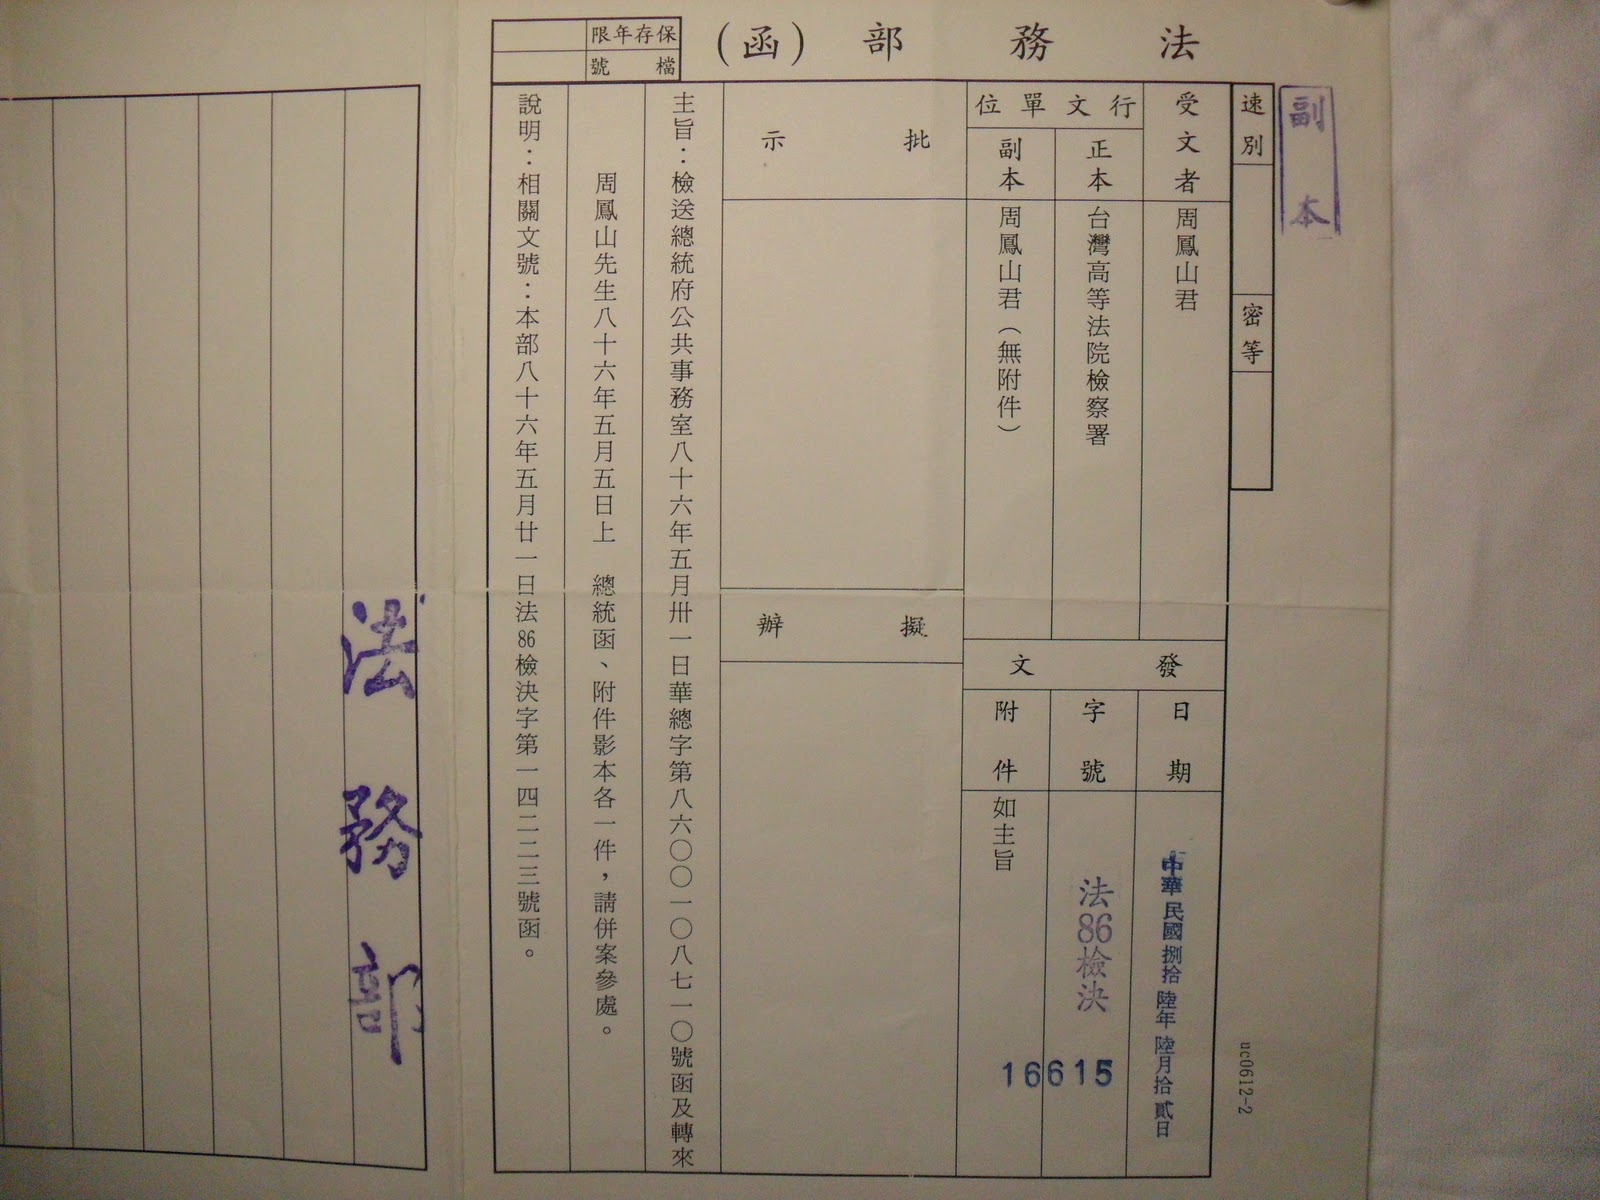 副本
法務部(函)
保存年限
檔號
速別
密等
受文者
周鳳山君
行文單位
正本
台灣高等法院檢察署
副本
周鳳山君(無附件)
發文
日期
中華民國捌拾陸年陸月拾貳日
字號
法86檢決
16615
附件
如主旨
批示
擬辦
主旨:檢送總統府公共事務室八十六年五月卅一日華總字第八六〇〇一〇八七一〇號函及轉來
周鳳山先生八十六年五月五日上 總統函、附件影本各一件,請併案參處。
說明:相關文號:本部八十六年五月廿一日法86檢決字第一四二二三號函。
法務部
uc0612-2